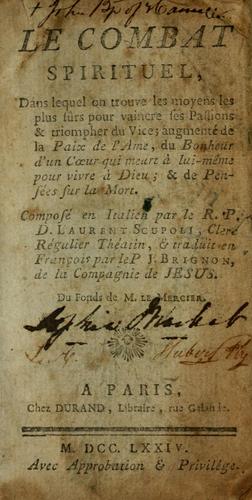 LE COMBAT
SPIRITUEL,
Dans lequel on trouve les moyens les
plus sûrs pour vaincre ses Passions
& triompher du Vice; augmenté de
la Paix de l'Ame, du Bonheur
d'un Cœur qui meurt à lui-même
pour vivre à Dieu; & de Pen-
sées sur la Mort.
Composé en Italien par le R. P.
D. LAURENT SCUPOLI, Clerc
Régulier Théatin, & traduit en
François par le P J. BRIGNON,
de la Compagnie de JESUS.
Du Fonds de M. LE MERCIER.
A PARIS,
Chez DURAND, Libraire, rue Galande.
M. DCC. LXXIV.
Avec Approbation & Privilége.